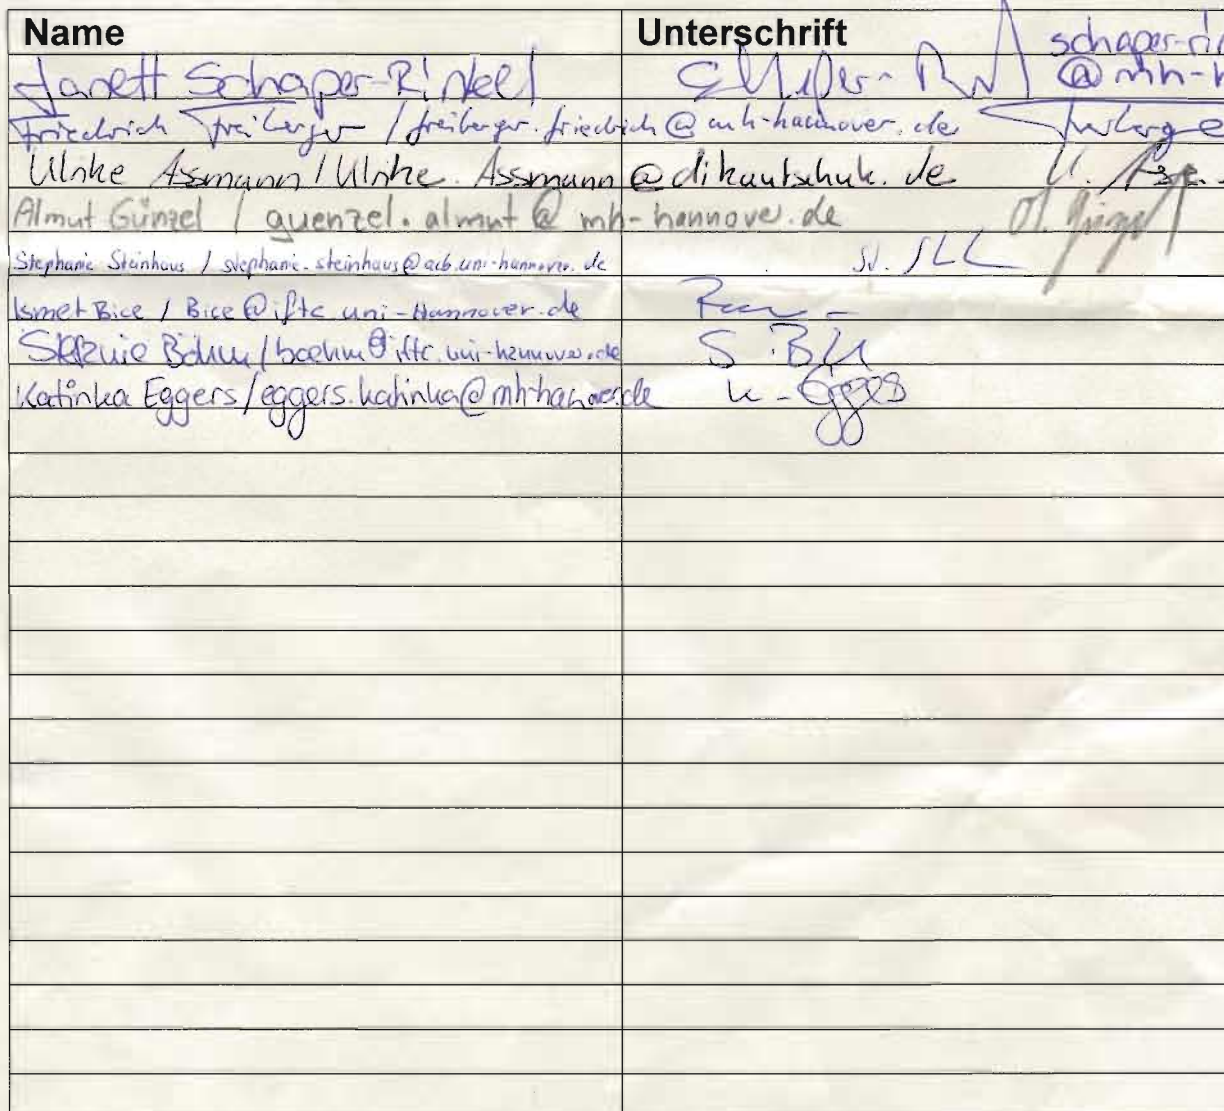 Name Unterschrift
Janett Schaper-Rinkel schaper-rin
@mh-h
Friedrich Freiberger / freiberger.friedrich@mh-hannover.de Freiberge
Ulrike Assmann / Ulrike.Assmann@dikautschuk.de U.
Almut Günzel / guenzel.almut@mh-hannover.de
Stephanie Steinhaus / stephanie.steinhaus@acb.uni-hannover.de
Ismet Bice / Bice@iftc.uni-Hannover.de
Stefanie Böhm / boehm@iftc.uni-hannover.de
Katinka Eggers / eggers.katinka@mh-hannover.de K. Eggers